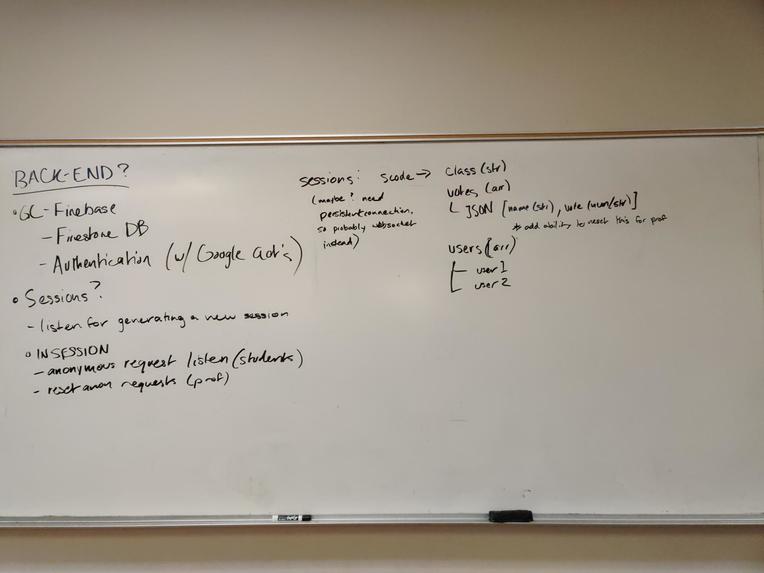 BACK-END?
• GC-Firebase
- Firestore DB
- Authentication (w/ Google
• Sessions?
- listen for generating a new session
• INSESSION
- anonymous request listen (students)
- reset anon requests (prof)
sessions: scode → class (str)
(maybe? need
persistent connection,
so probably websocket
instead)
votes (arr)
JSON [name (str), vote (num/str)]
* add ability to reset this for prof
users (arr)
user 1
user 2